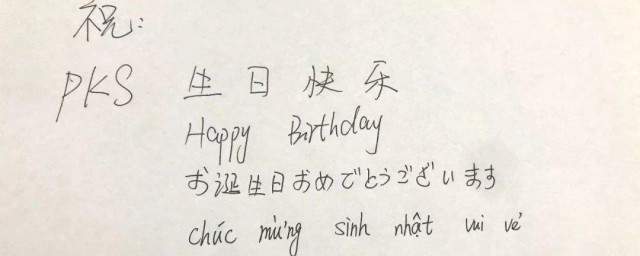 祝:
PKS 生日快乐
Happy Birthday
お誕生日おめでとうございます
chúc mừng sinh nhật vui vẻ